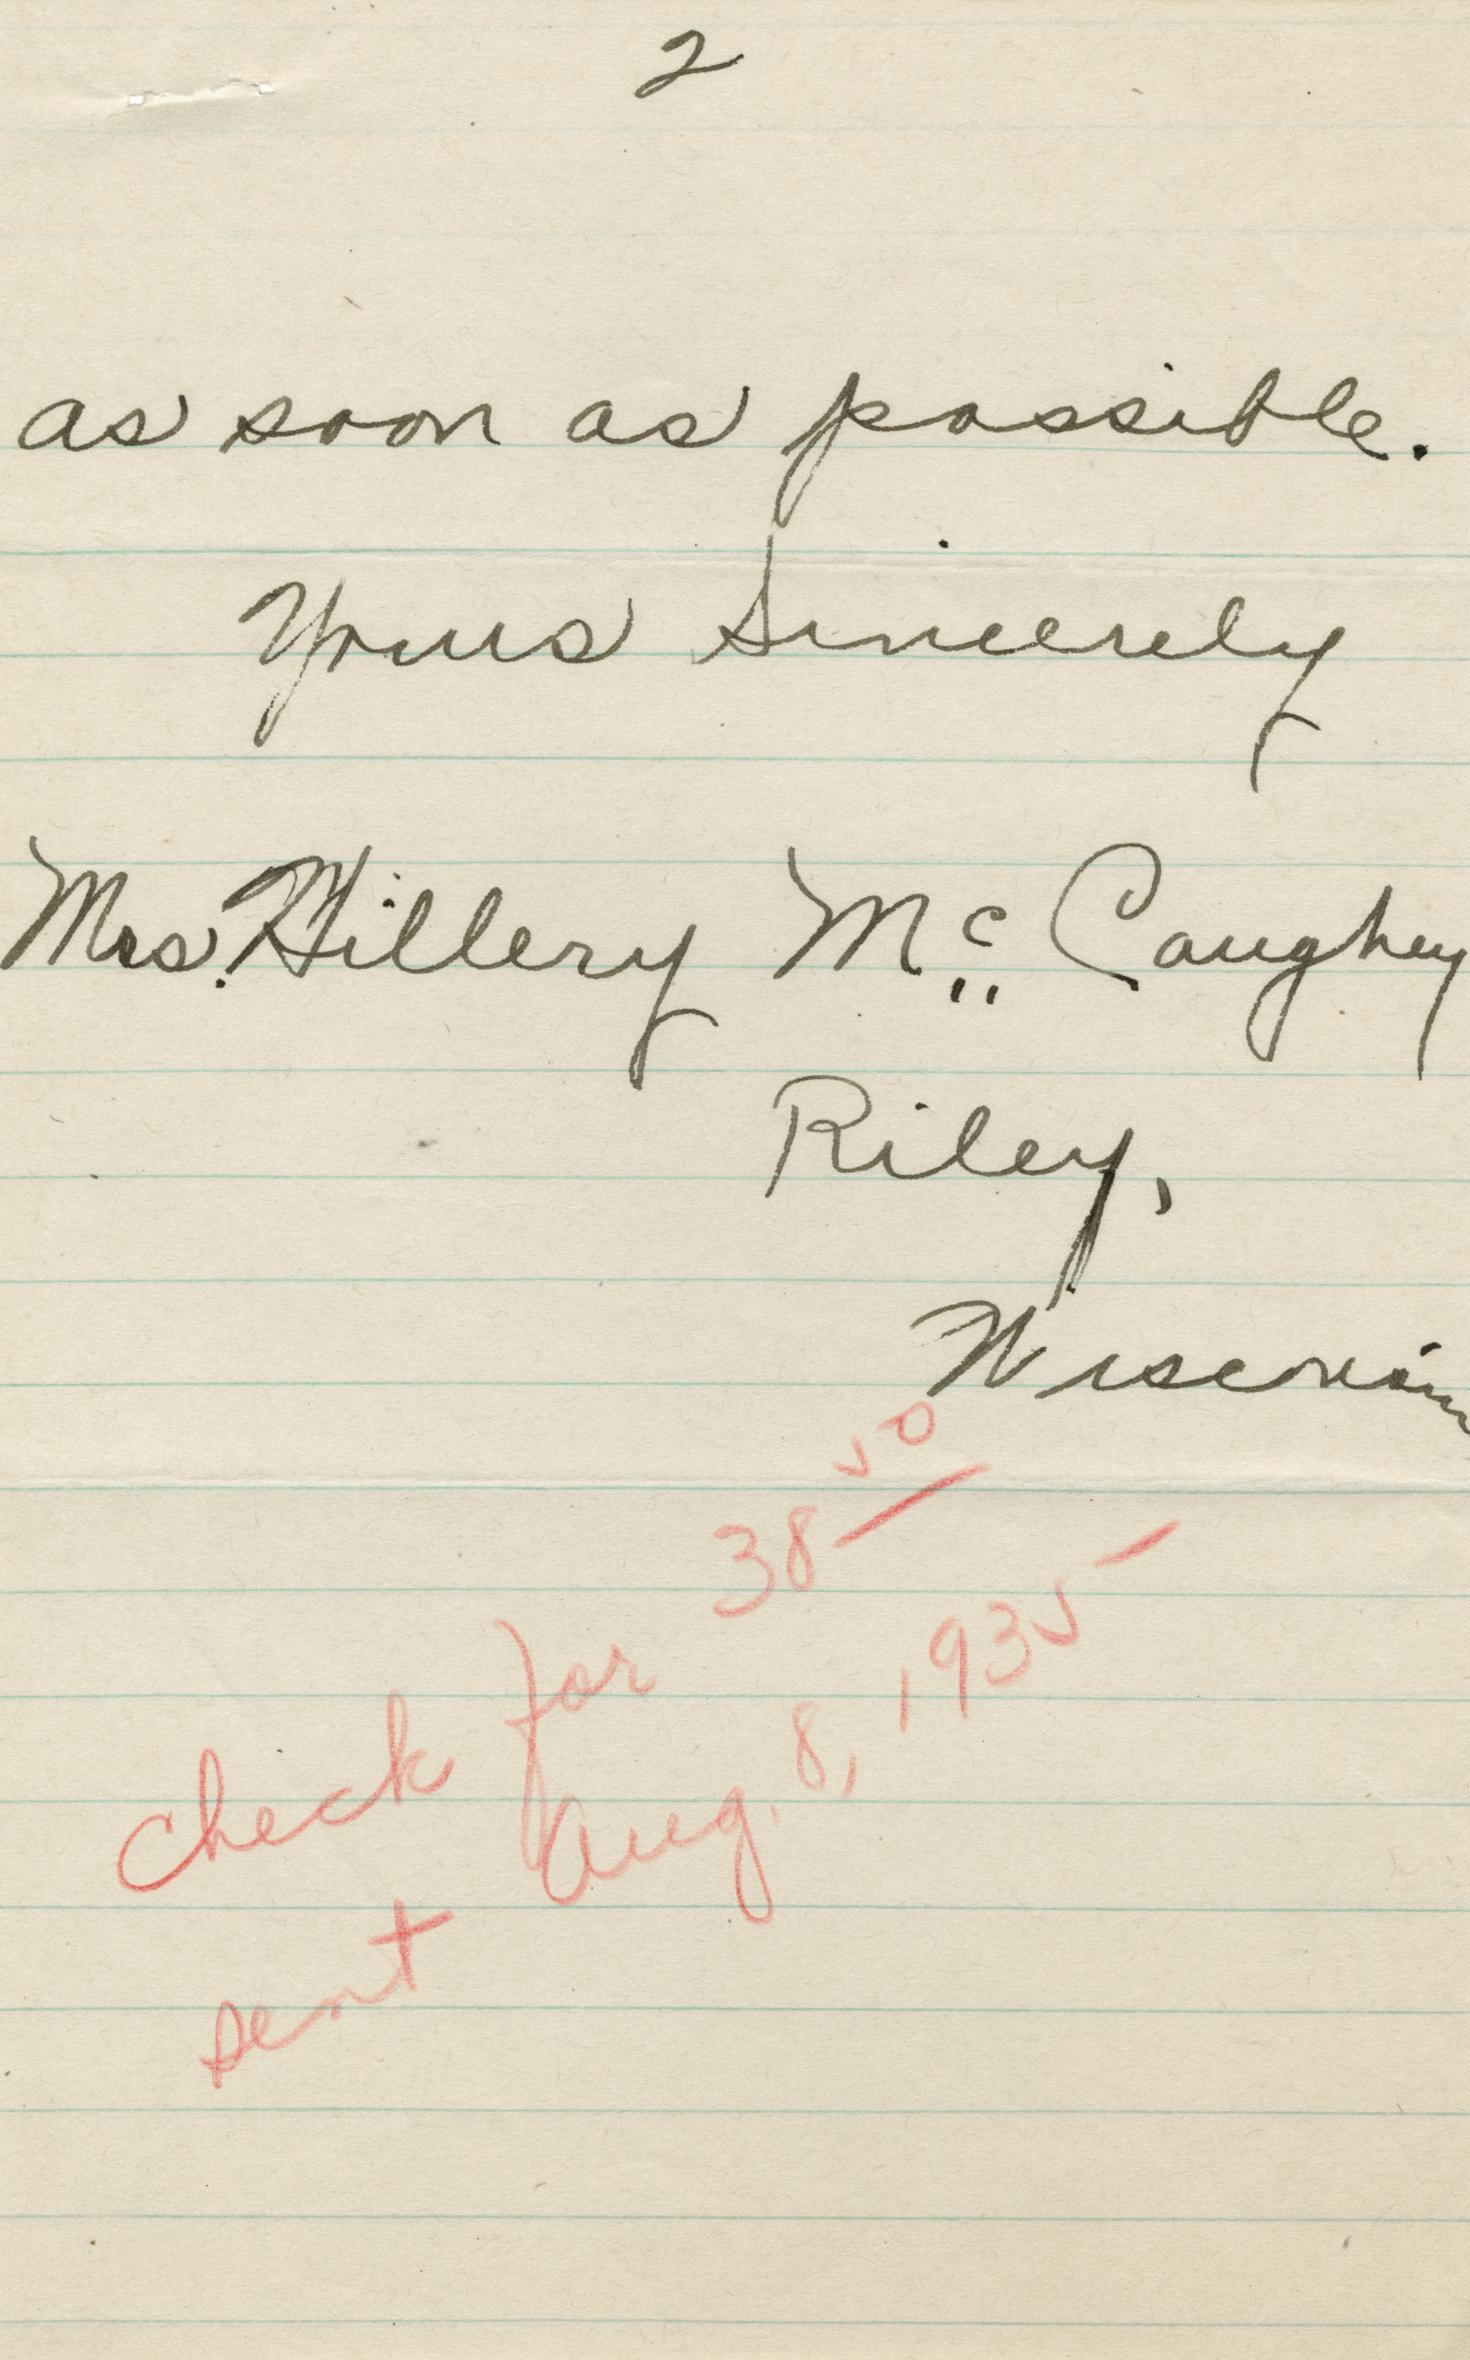 2
as soon as possible.
Yours Sincerely
Mrs. Hillery Mc Caughey
Riley,
Wisconsin
Check for 38 50
sent Aug. 8, 1935